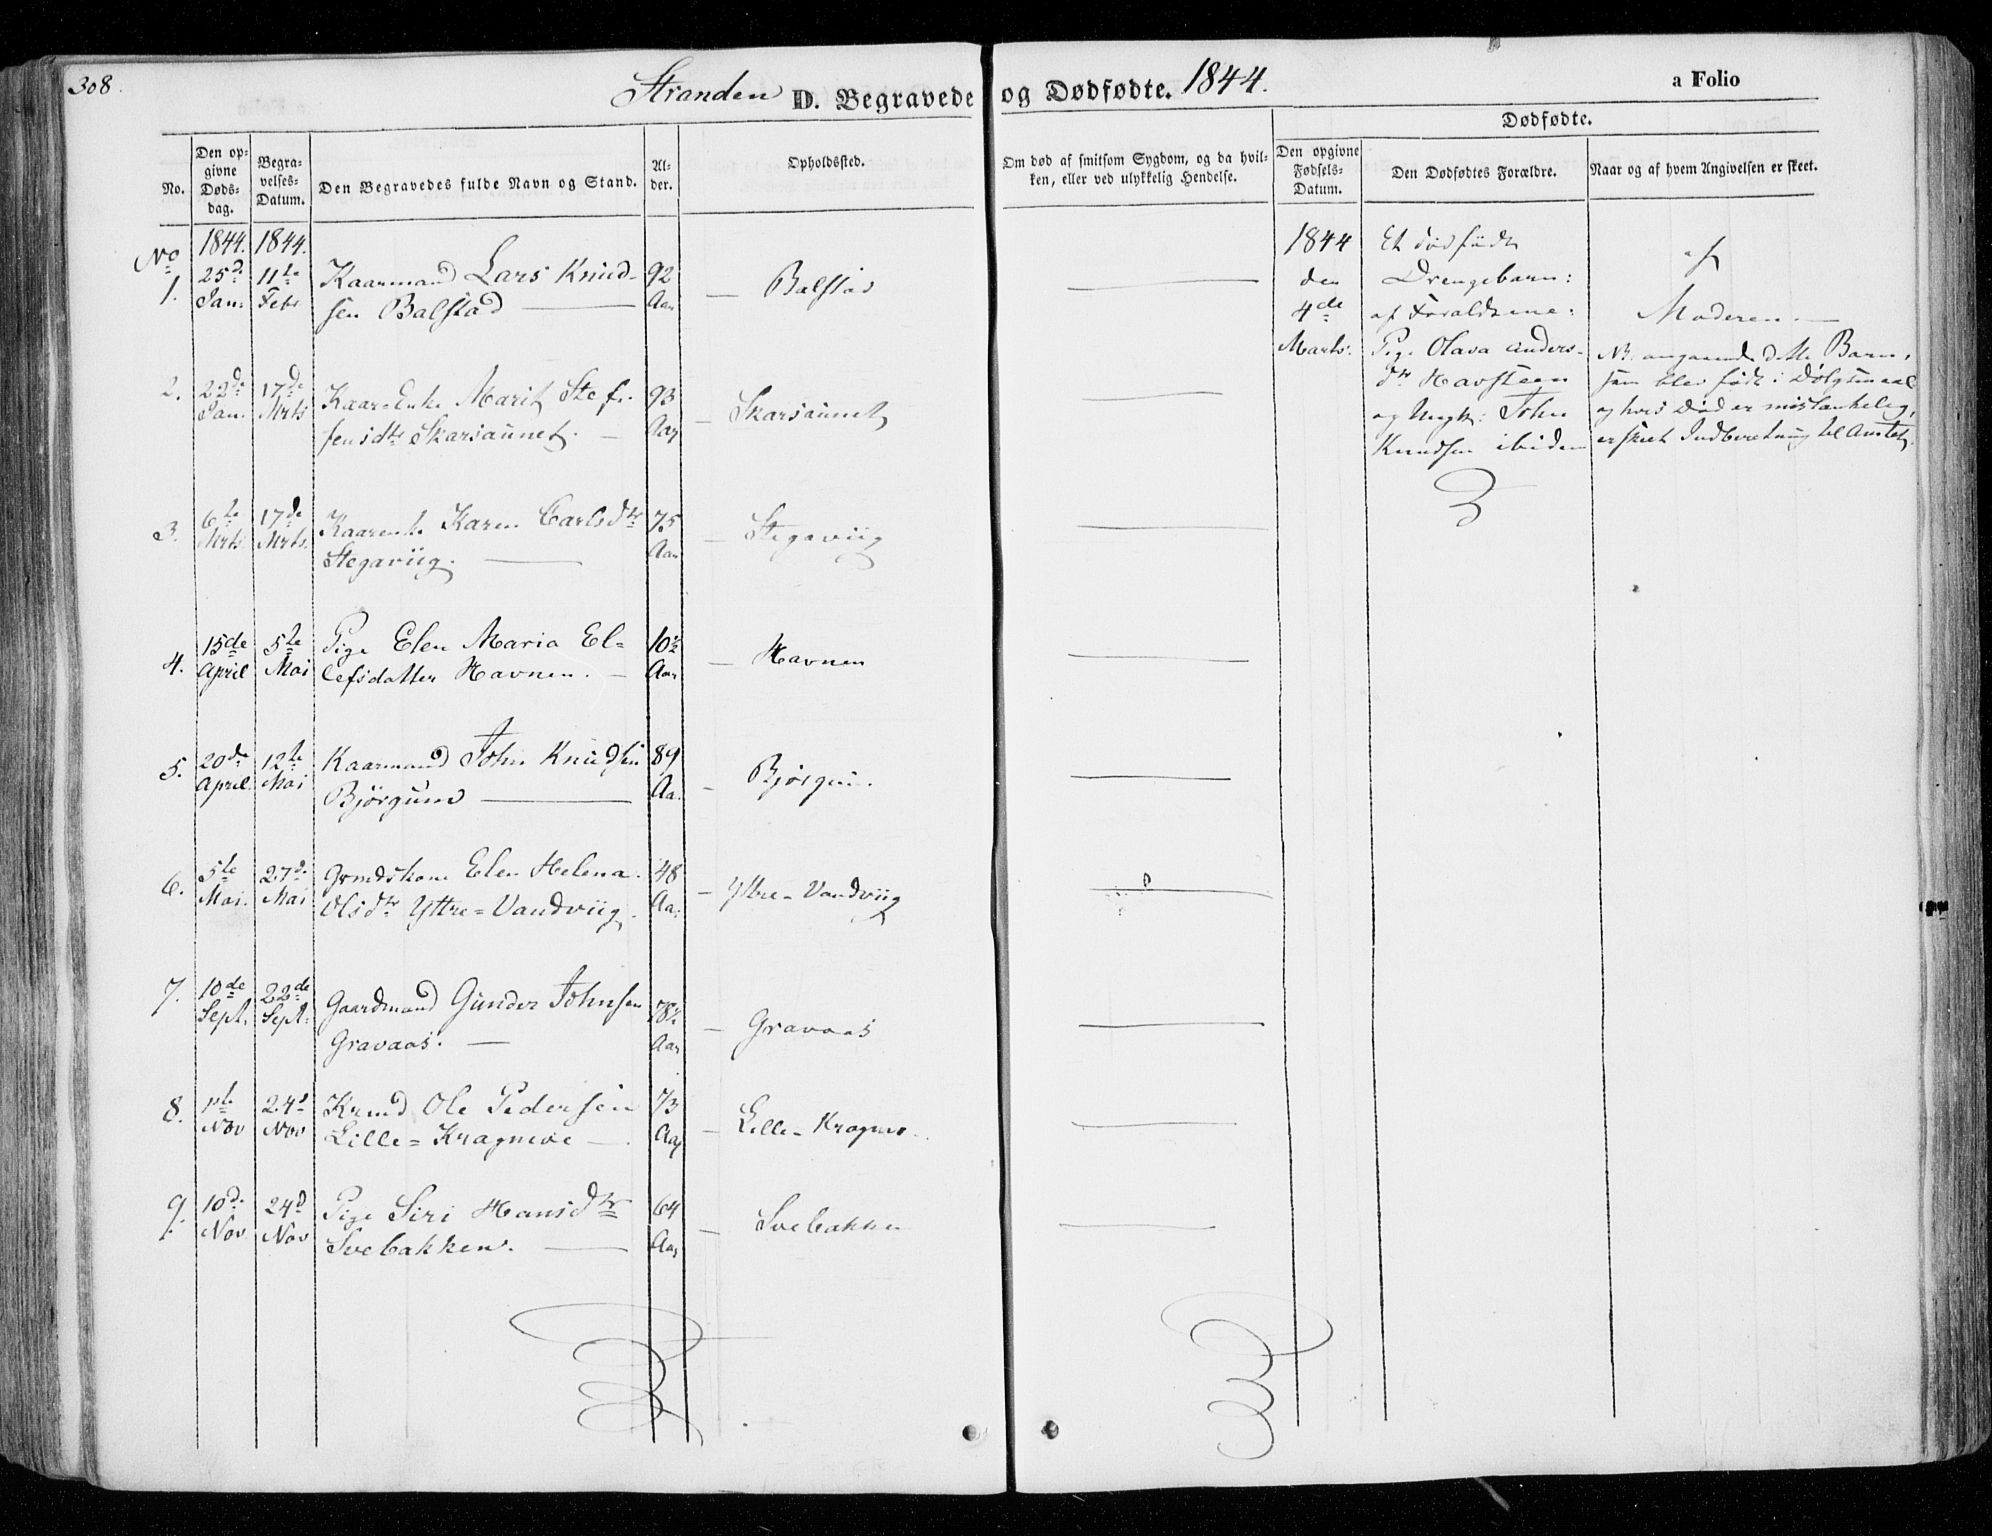 308.
Stranden D. Begravede og Dødfødte. 1844. a Folio
No.
Den op-
givne
Døds-
dag.
Begra-
velses-
Datum.
Den Begravedes fulde Navn og Stand.
Al-
der.
Opholdssted.
Om død af smitsom Sygdom, og da hvil-
ken, eller ved ulykkelig Hendelse.
Dødfødte.
Den opgivne
Fødsels-
Datum.
Den Dødfødtes Forældre.
Naar og af hvem Angivelsen er skeet.
No 1844. 1844.
1. 25d 11te Kaarmand Lars Knud- 92 — Balstad
Jan. Febr sen Balstad — Aar
2. 22de 17de Kaar-Enke Marit Stef- 93 — Skarsaunet
Jan. Mrts fensdtr Skarsaunet. — Aar
3. 6te 17de Kaarenke Karen Carlsdtr 75 — Stegaviig
Mrts. Mrts. Stegaviig. — Aar
4. 15de 5te Pige Elen Maria El- 10½ — Havnen
April Mai lefsdatter Havnen. — Aar
5. 20de 12te Kaarmand John Knudsen 89 — Bjørgum.
April Mai Bjørgum — Aa.
6. 5te 27d. Elen Helena 48 — Yttre-Vandviig
Mai. Mai Olsdtr Yttre-Vandviig. Aa.
7. 10de 22de Gaardmand Gunder Johnsen 78½ — Gravaas
Sept. Sept. Gravaas. — Aar
8. 1ste 24d Ole Pedersen 73 — Lille-
Nov Nov Lille- — Aar
9. 10d. 24d Pige Siri Hansdtr 64 — Svebakken
Nov Nov Svebakken. — Aar
1844
den
4de
Marts.
Et dødfødt
Drengebarn:
af Forældrene:
Pige Olava Anders-
dtr Havsteen
og Ungk: John
Knudsen ibidem
af
Moderen. —
NB. angaaende dette Barn,
som blev født i Dølgsmaal
og hvis Død er mistænkelig,
er skeet Indberetning til Amtet.